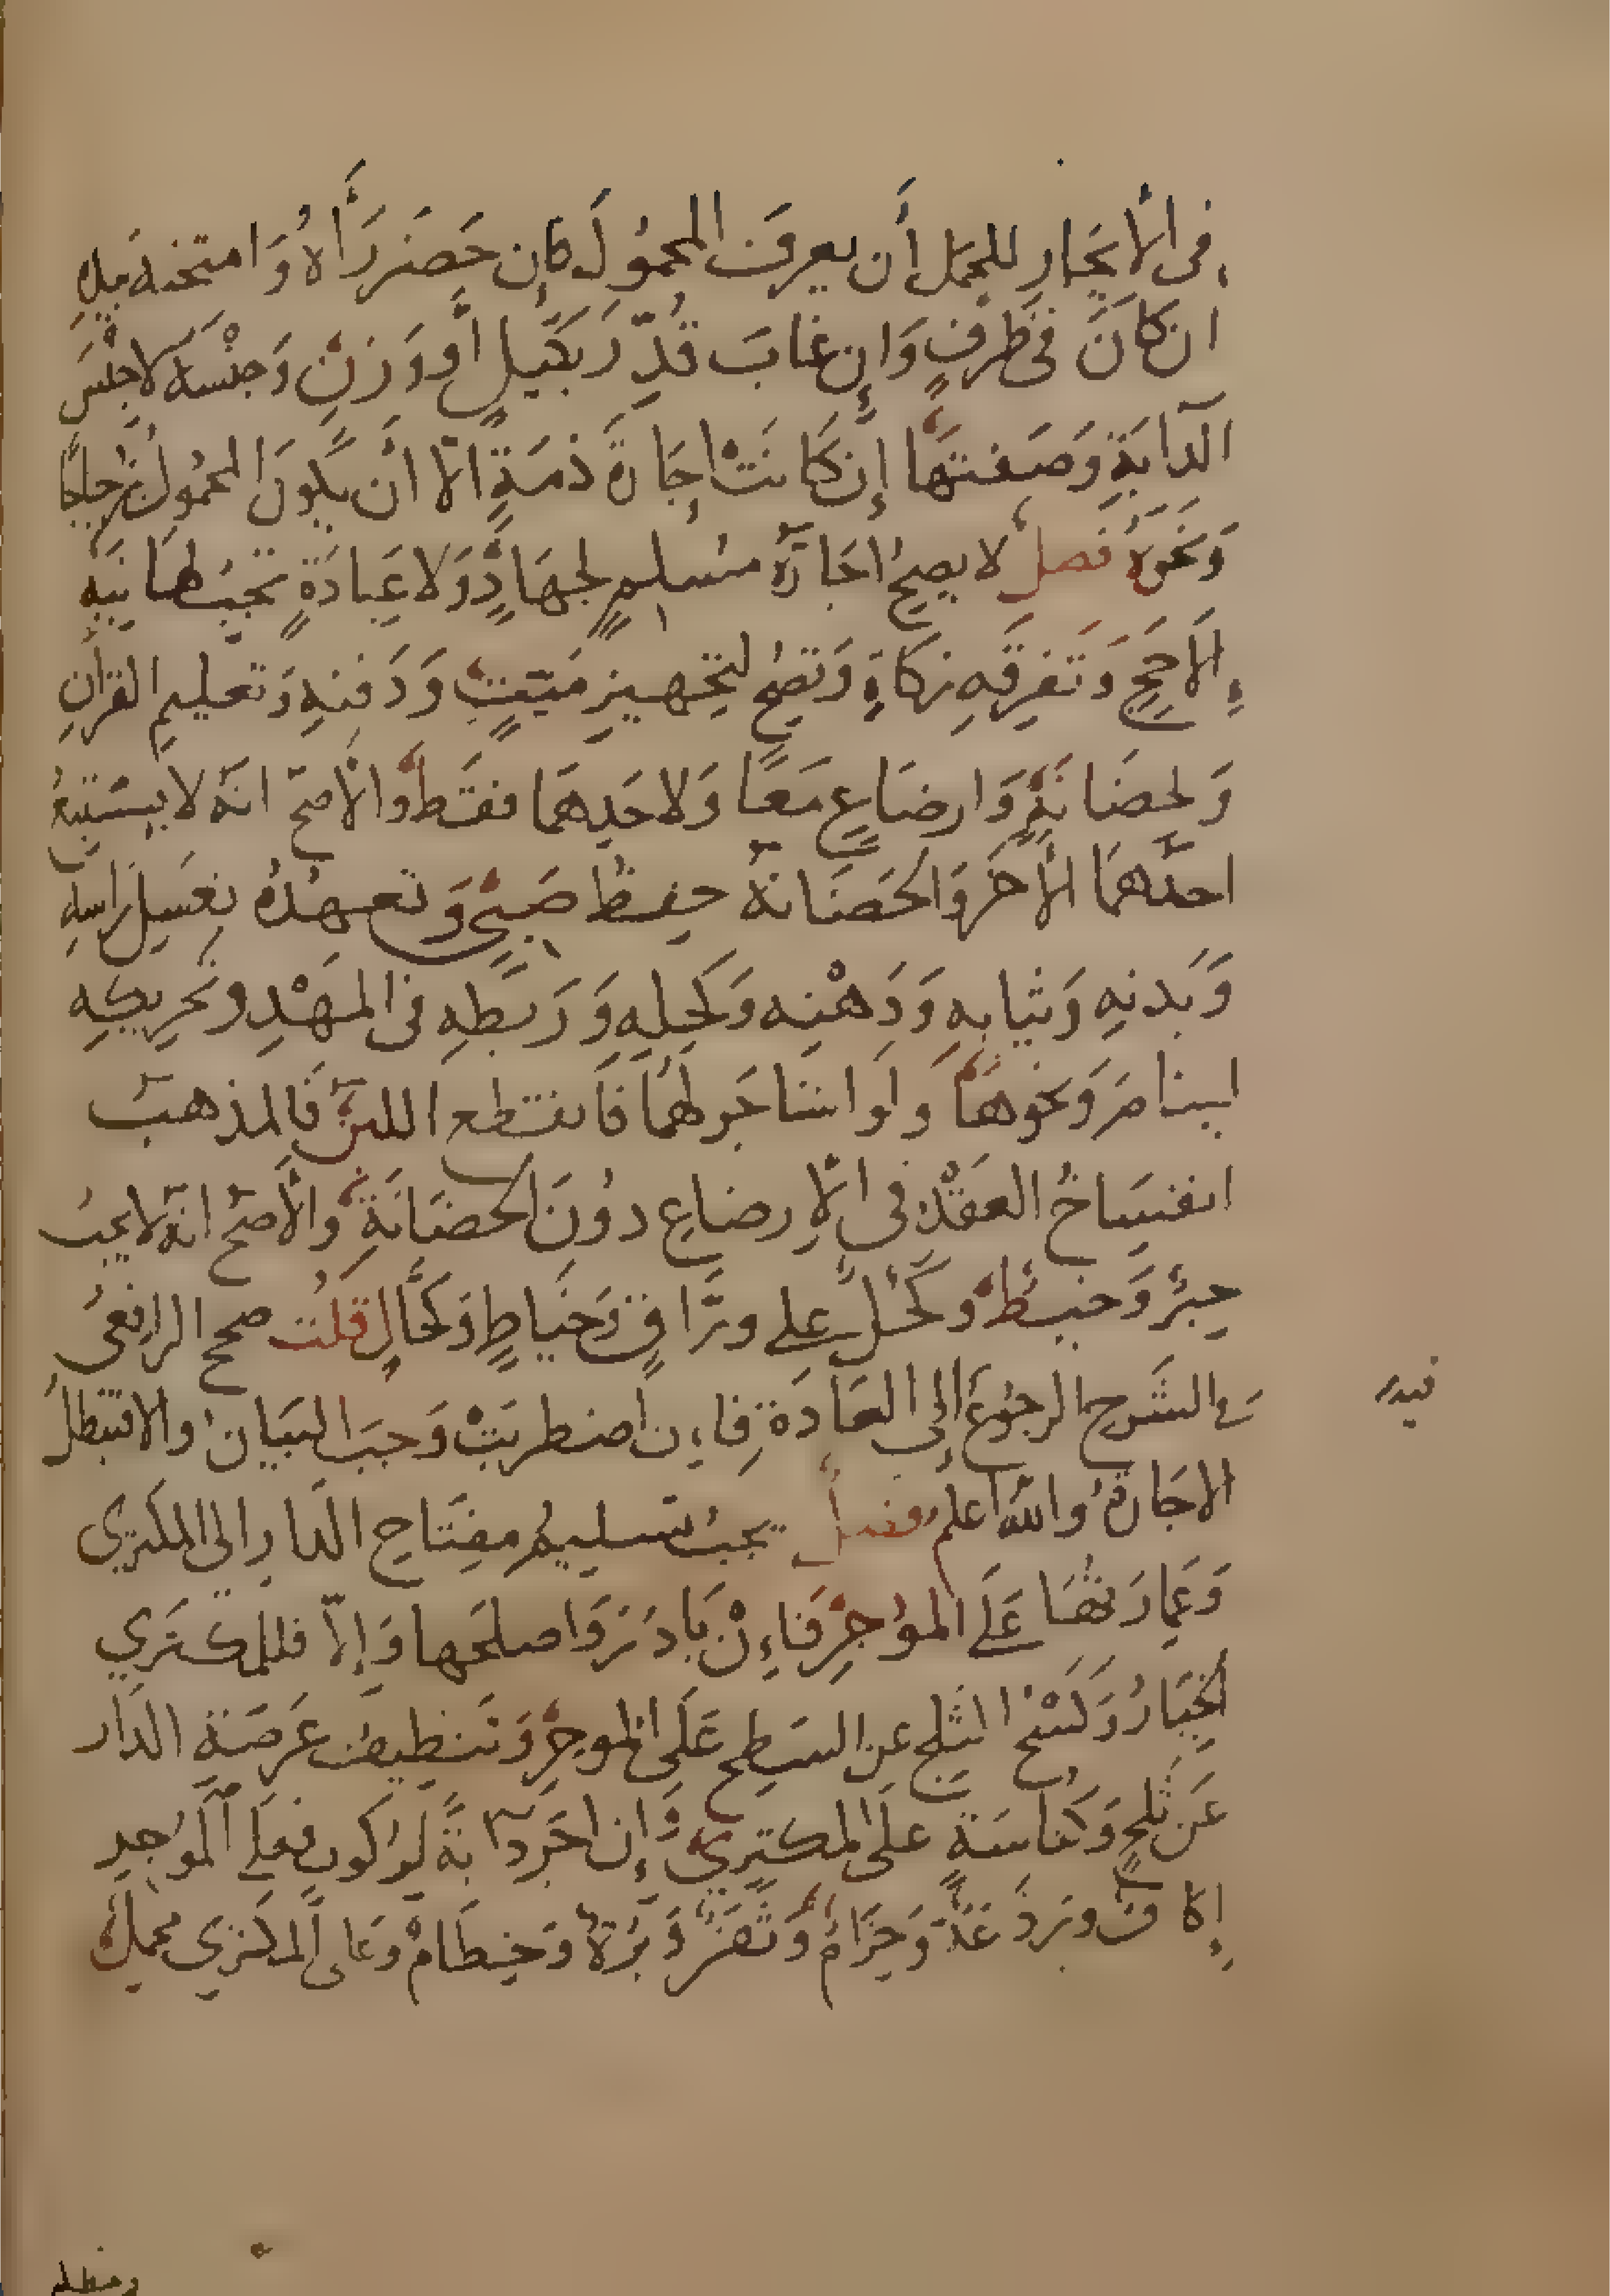 في الايجار للحمل أن يعرف المحمول فإن حضر رأاه وامتحنه بيده
ان كان في ظرف وإن غاب قدر بكيل أو وزن وجنسه لا جنس
الدابة وصفتها إن كانت اجارة ذمة الا ان يكون المحمول زجاجا
ونحوه فصل لا يصح اجارة مسلم لجهاد ولا عبادة تجب لها نية
إلا حج وتفرقه زكاة وتصح لتجهيز ميت ودفنه وتعليم القرأن
ولحضانة وارضاع معا ولاحدهما فقط والأصح انه لا يستتبع
احدهما الأخر والحضانة حفظ صبي وتعهده بغسل راسه
وبدنه وثيابه ودهنه وكحله وربطه في المهد وتحريكه
لينام ونحوها ولو استاجر لهما فانقطع اللبن فالمذهب
انفساخ العقد في الإرضاع دون الحضانة والأصح انه لا يجب
حبر وخيط وكحل على وراق وخياط وكحال قلت صحح الرافعي
في الشرح الرجوع إلى العادة فإن اضطربت وجب البيان والا فتبطل
الاجارة والله اعلم فصل يجب تسليم مفتاح الدار الى المكتري
وعمارتها على المؤجر فإن بادر واصلحها وإلا فللمكتري
الخيار وكسح الثلج عن السطح على الموجر وتنظيف عرصة الدار
عن ثلج وكناسة على المكتري وإن اجر دابة لركوب فعلى الموجر
إكاف وبرذعة وحزام وثفر وبرة وخطام وعلى المكتري محمل